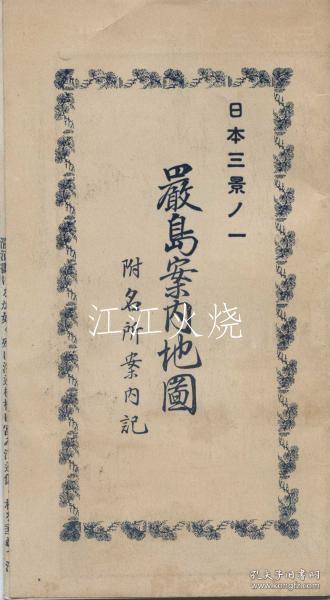 日本三景ノ一
嚴島案内地圖
附名所案内記
江江火烧
孔夫子旧书网